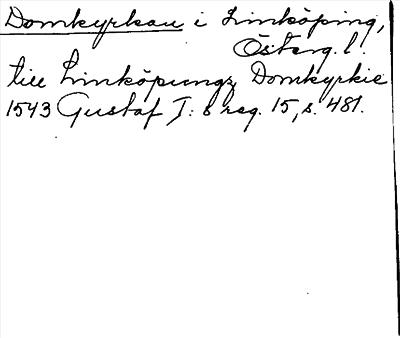 Domkyrkan i Linköping,
Österg. l.
till Linköpungz Domkyrkie
1543 Gustaf I: s reg. 15, s. 481.